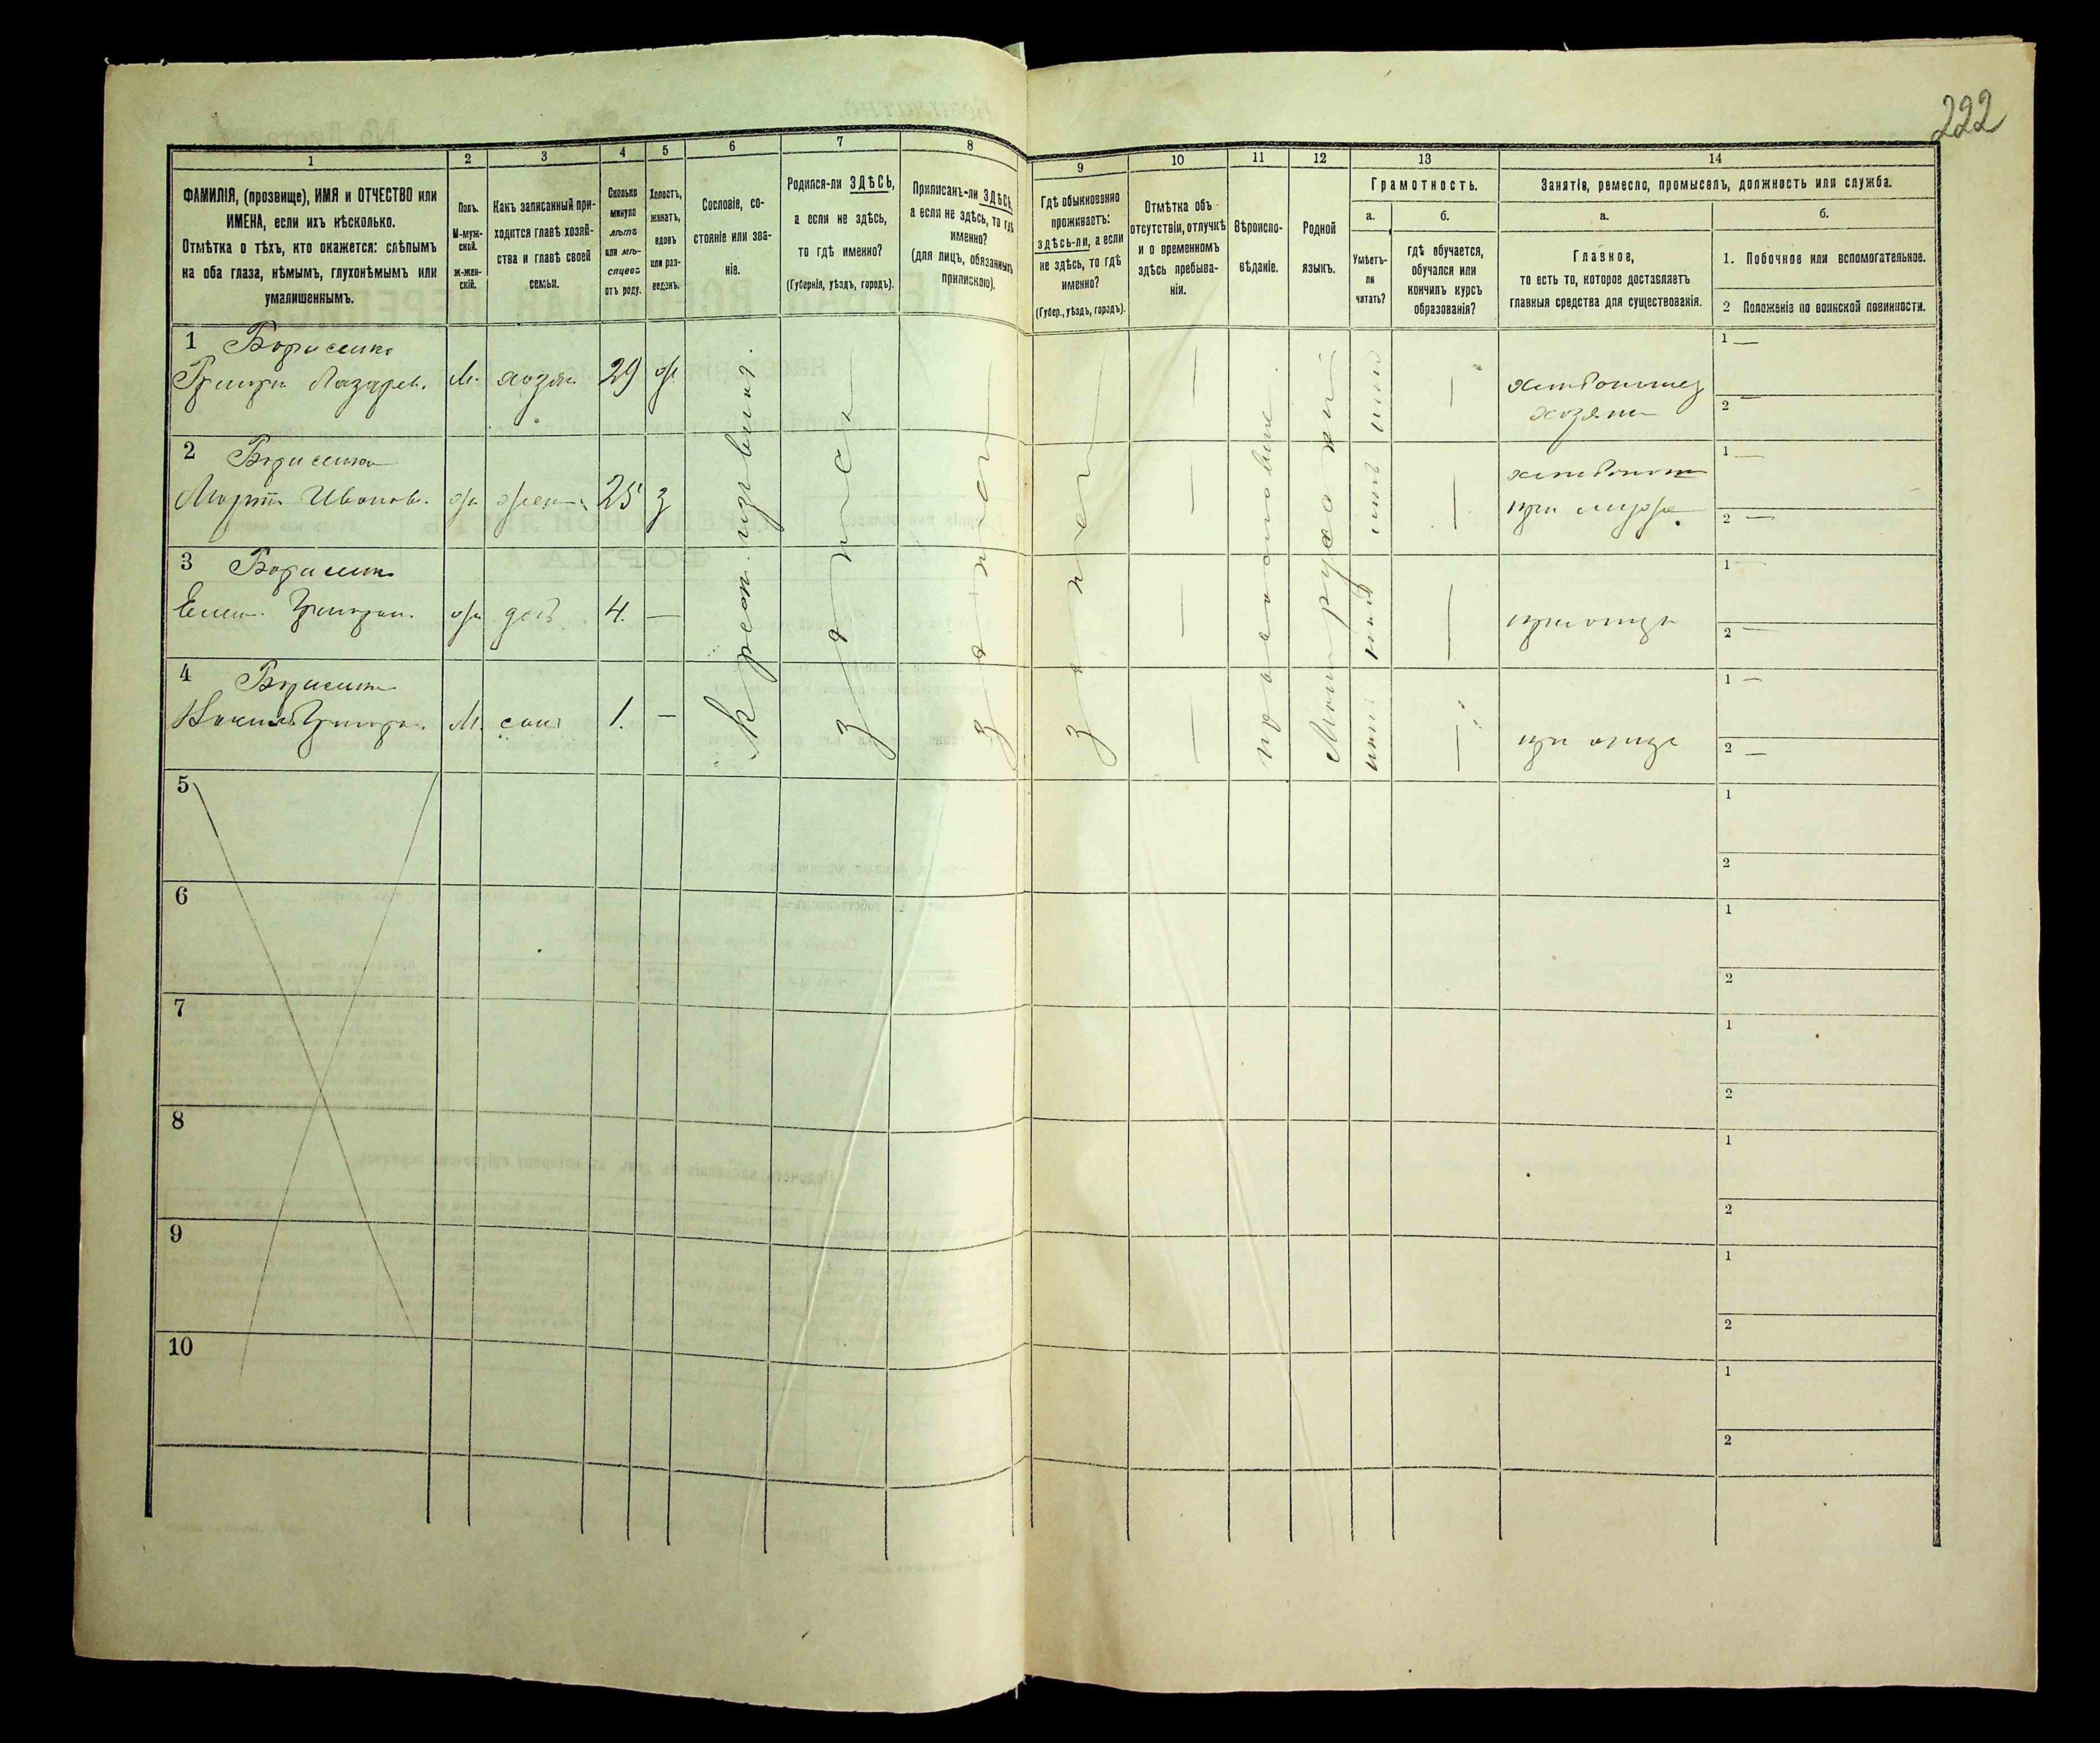 222
1
2
3
4
5
6
7
8
9
10
11
12
13
14
ФАМИЛІЯ, (прозвище), ИМЯ и ОТЧЕСТВО или
ИМЕНА, если ихъ нѣсколько.
Отмѣтка о тѣхъ, кто окажется: слѣпымъ
на оба глаза, нѣмымъ, глухонѣмымъ или
умалишеннымъ.
Полъ.
М-муж-
ской.
ж-жен-
скій.
Какъ записанный при-
ходится главѣ хозяй-
ства и главѣ своей
семьи.
Сколько
минуло
лѣтъ
или мѣ-
сяцевъ
отъ роду.
Холостъ,
женатъ,
вдовъ
или раз-
веденъ.
Сословіе, со-
стояніе или зва-
ніе.
Родился-ли ЗДѢСЬ,
а если не здѣсь,
то гдѣ именно?
(Губернія, уѣздъ, городъ).
Приписанъ-ли ЗДѢСЬ,
а если не здѣсь, то гдѣ
именно?
(для лицъ, обязанныхъ
припискою).
Гдѣ обыкновенно
проживаетъ:
здѣсь-ли, а если
не здѣсь, то гдѣ
именно?
(Губер., уѣздъ, городъ).
Отмѣтка объ
отсутствіи, отлучкѣ
и о временномъ
здѣсь пребыва-
ніи.
Вѣроиспо-
вѣданіе.
Родной
языкъ.
Грамотность.
а.
Умѣетъ-
ли
читать?
б.
гдѣ обучается,
обучался или
кончилъ курсъ
образованія?
Занятіе, ремесло, промыселъ, должность или служба.
а.
Главное,
то есть то, которое доставляетъ
главныя средства для существованія.
б.
1. Побочное или вспомогательное.
2 Положеніе по воинской повинности.
1 Борисенко
Григори Лазарев. М. хозяи 29 ж
хозяин
1 —
2 —
2 Борисенко
Иванов. 25 з
при
1 —
2 —
3 Борисенко
4. —
при отце
1 —
2 —
4 Борисенко
М. сын 1. —
при отце
1 —
2 —
здесь
здесь
здесь
православие
Малорусский
5
1
2
6
1
2
7
1
2
8
1
2
9
1
2
10
1
2